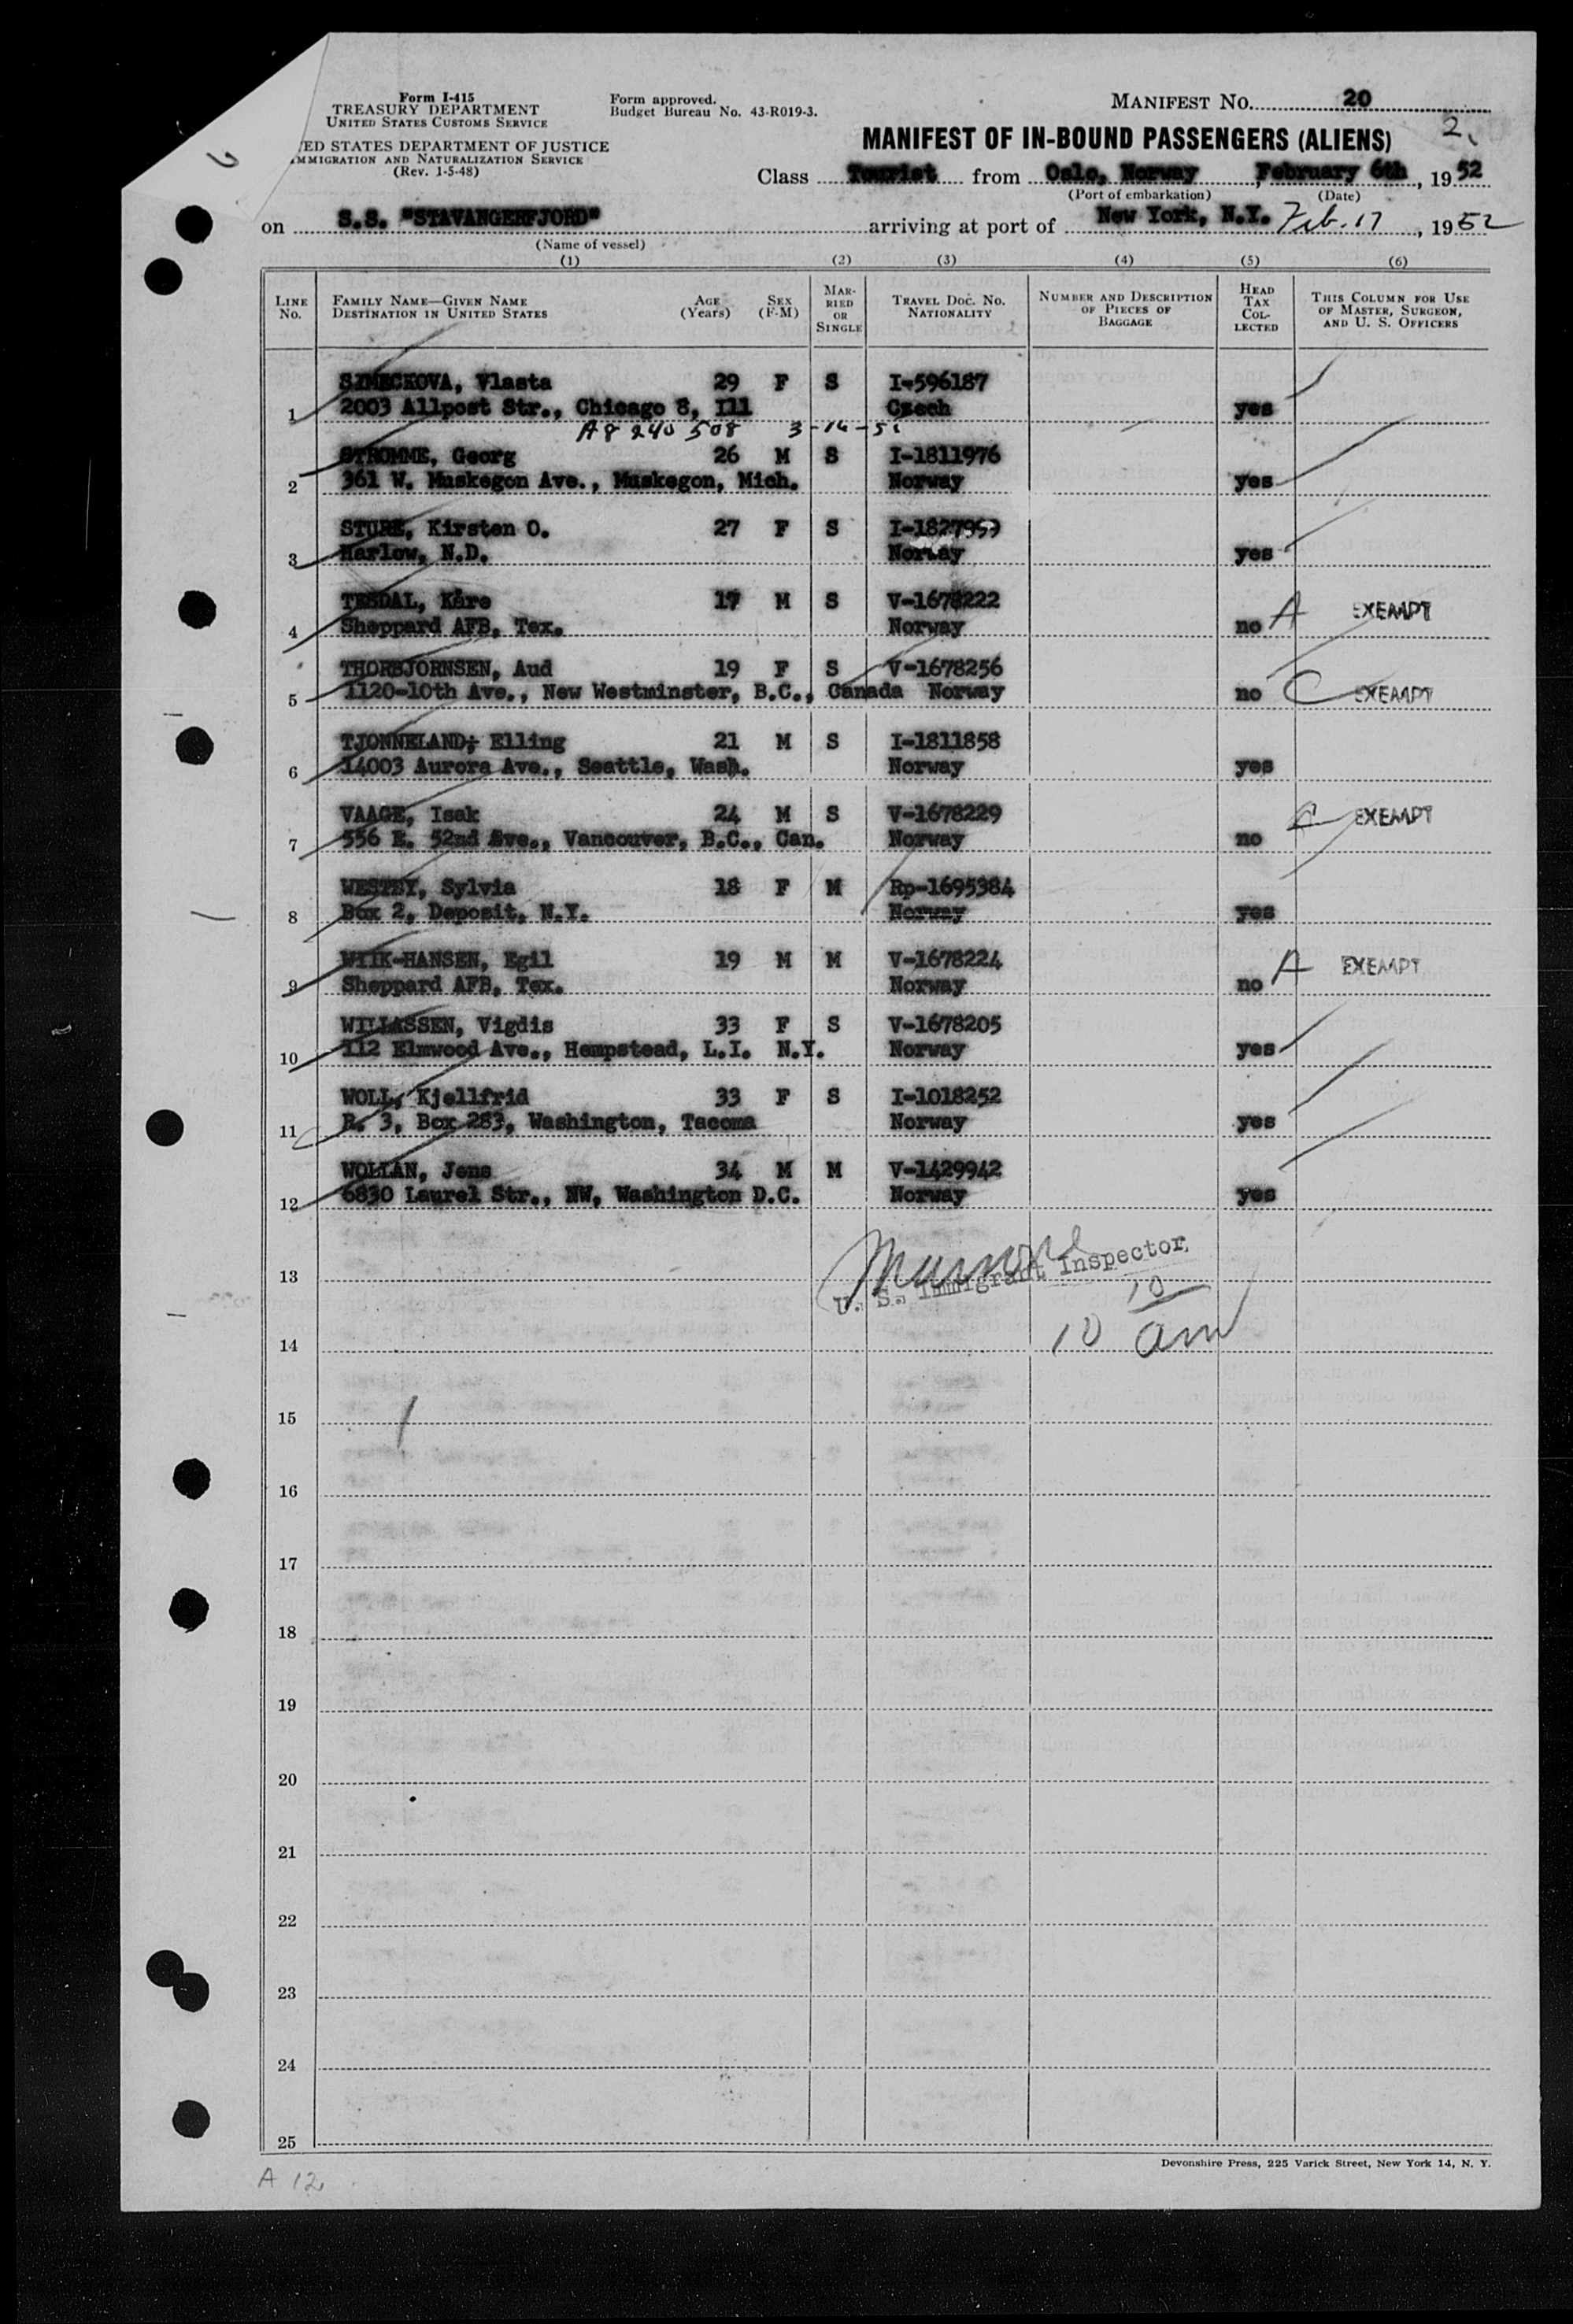 Form I-415
TREASURY DEPARTMENT
UNITED STATES CUSTOMS SERVICE
ED STATES DEPARTMENT OF JUSTICE
MMIGRATION AND NATURALIZATION SERVICE
(Rev. 1-5-48)
Form approved.
Budget Bureau No. 43-R019-3.
MANIFEST NO. 20
2
MANIFEST OF IN-BOUND PASSENGERS (ALIENS)
Class Tourist from Oslo, Norway, February 6th, 1952
(Port of embarkation) (Date)
on S.S. "STAVANGERFJORD" arriving at port of New York, N.Y. Feb. 17, 1952
(Name of vessel)
(1) (2) (3) (4) (5) (6)
LINE No. FAMILY NAME—GIVEN NAME DESTINATION IN UNITED STATES AGE (Years) SEX (F-M) MARRIED OR SINGLE TRAVEL DOC. NO. NATIONALITY NUMBER AND DESCRIPTION OF PIECES OF BAGGAGE HEAD TAX COLLECTED THIS COLUMN FOR USE OF MASTER, SURGEON, AND U. S. OFFICERS
SIMECKOVA, Vlasta 29 F S I-596187
1 2003 Allport Str., Chicago 8, Ill Czech yes
A8 240 508 3-14-5
STROMME, Georg 26 M S I-1811976
2 361 W. Muskegon Ave., Muskegon, Mich. Norway yes
STURE, Kirsten O. 27 F S I-1827959
3 Harlow, N.D. Norway yes
TESDAL, Kåre 17 M S V-1678222
4 Sheppard AFB, Tex. Norway no A EXEMPT
THORBJORNSEN, Aud 19 F S V-1678256
5 1120-10th Ave., New Westminster, B.C., Canada Norway no C EXEMPT
TJONNELAND; Elling 21 M S I-1811858
6 14003 Aurora Ave., Seattle, Wash. Norway yes
VAAGE, Isak 24 M S V-1678229
7 556 E. 52nd Ave., Vancouver, B.C., Can. Norway no C EXEMPT
WESTBY, Sylvia 18 F M Rp-1695384
8 Box 2, Deposit, N.Y. Norway yes
WIIK-HANSEN, Egil 19 M M V-1678224
9 Sheppard AFB, Tex. Norway no A EXEMPT
WILLASSEN, Vigdis 33 F S V-1678205
10 112 Elmwood Ave., Hempstead, L.I. N.Y. Norway yes
WOLL, Kjellfrid 33 F S I-1018252
11 R. 3, Box 283, Washington, Tacoma Norway yes
WOLLAN, Jens 34 M M V-1429942
12 6830 Laurel Str., NW, Washington D.C. Norway yes
U. S. Immigrant Inspector
13
10 10 am
14
15
16
17
18
19
20
21
22
23
24
25
Devonshire Press, 225 Varick Street, New York 14, N. Y.
A 12